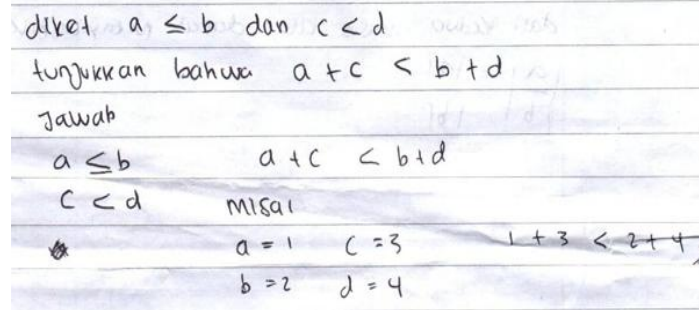 diket a ≤ b dan c < d
tunjukkan bahwa a + c < b + d
Jawab
a ≤ b a + c < b + d
c < d misal
a = 1 c = 3 1 + 3 < 2 + 4
b = 2 d = 4